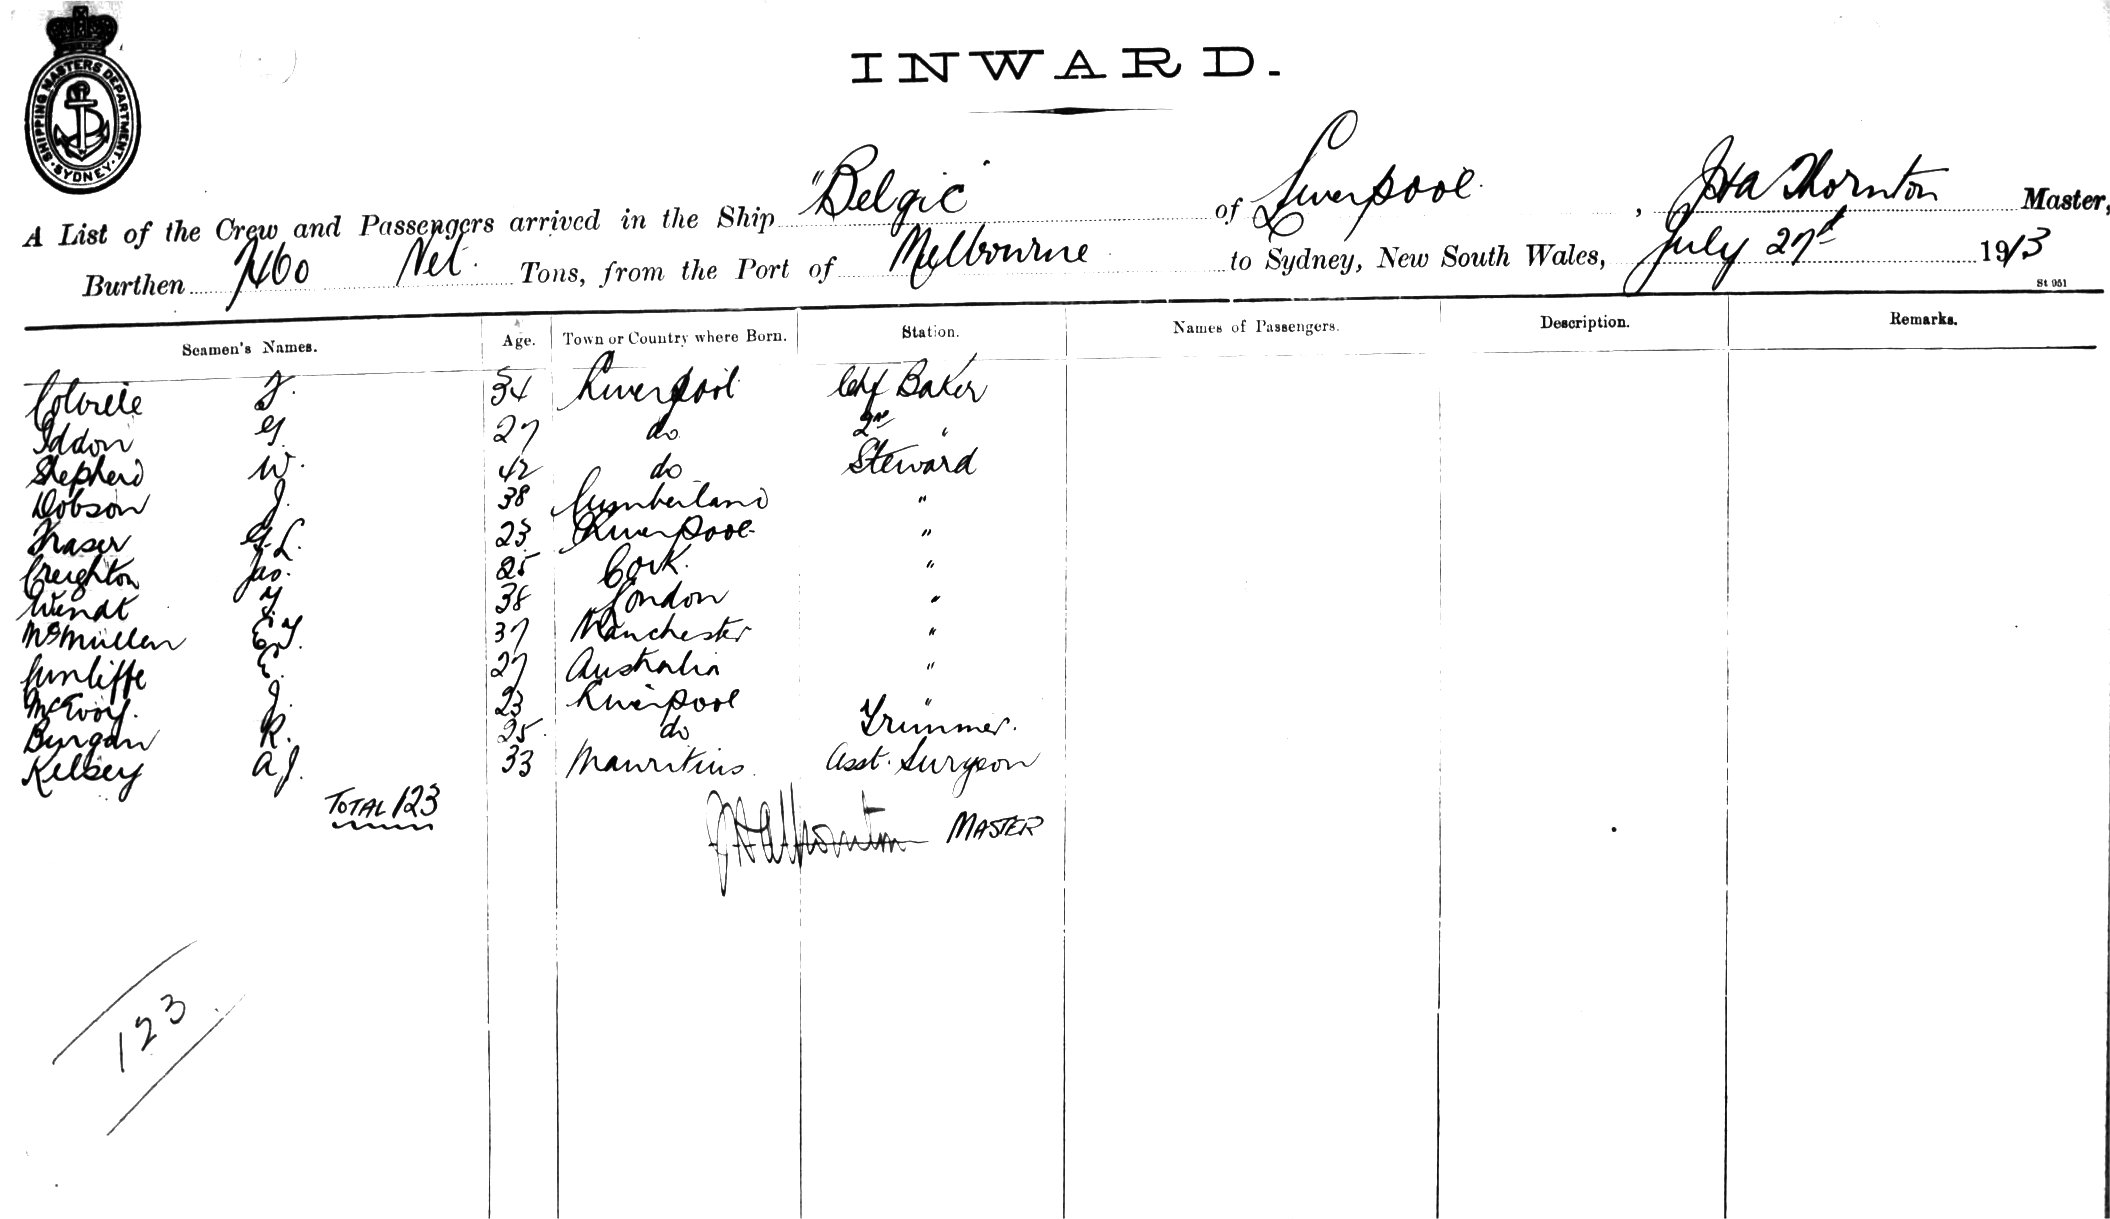 INWARD.
SHIPPING MASTERS DEPARTMENT · SYDNEY ·
A List of the Crew and Passengers arrived in the Ship "Belgic" of Liverpool, JHA Thornton Master,
Burthen 7460 Net. Tons, from the Port of Melbourne to Sydney, New South Wales, July 27th 1913
St 951
Seamen's Names. Age. Town or Country where Born. Station. Names of Passengers. Description. Remarks.
34 Liverpool Chf Baker
Iddon G. 27 do 2nd "
Shepherd W. 42 do Steward
Dobson J. 38 Cumberland "
Fraser G.L. 23 Liverpool "
Creighton Jas. 25 Cork. "
Wendt 38 London "
McMullen 37 Manchester "
Cunliffe E. 27 Australia "
McEvoy. J. 23 Liverpool "
Burgan R. 25 do Trimmer.
Kelsey A.J. 33 Mauritius Asst. Surgeon
TOTAL 123
JHA Thornton MASTER
123